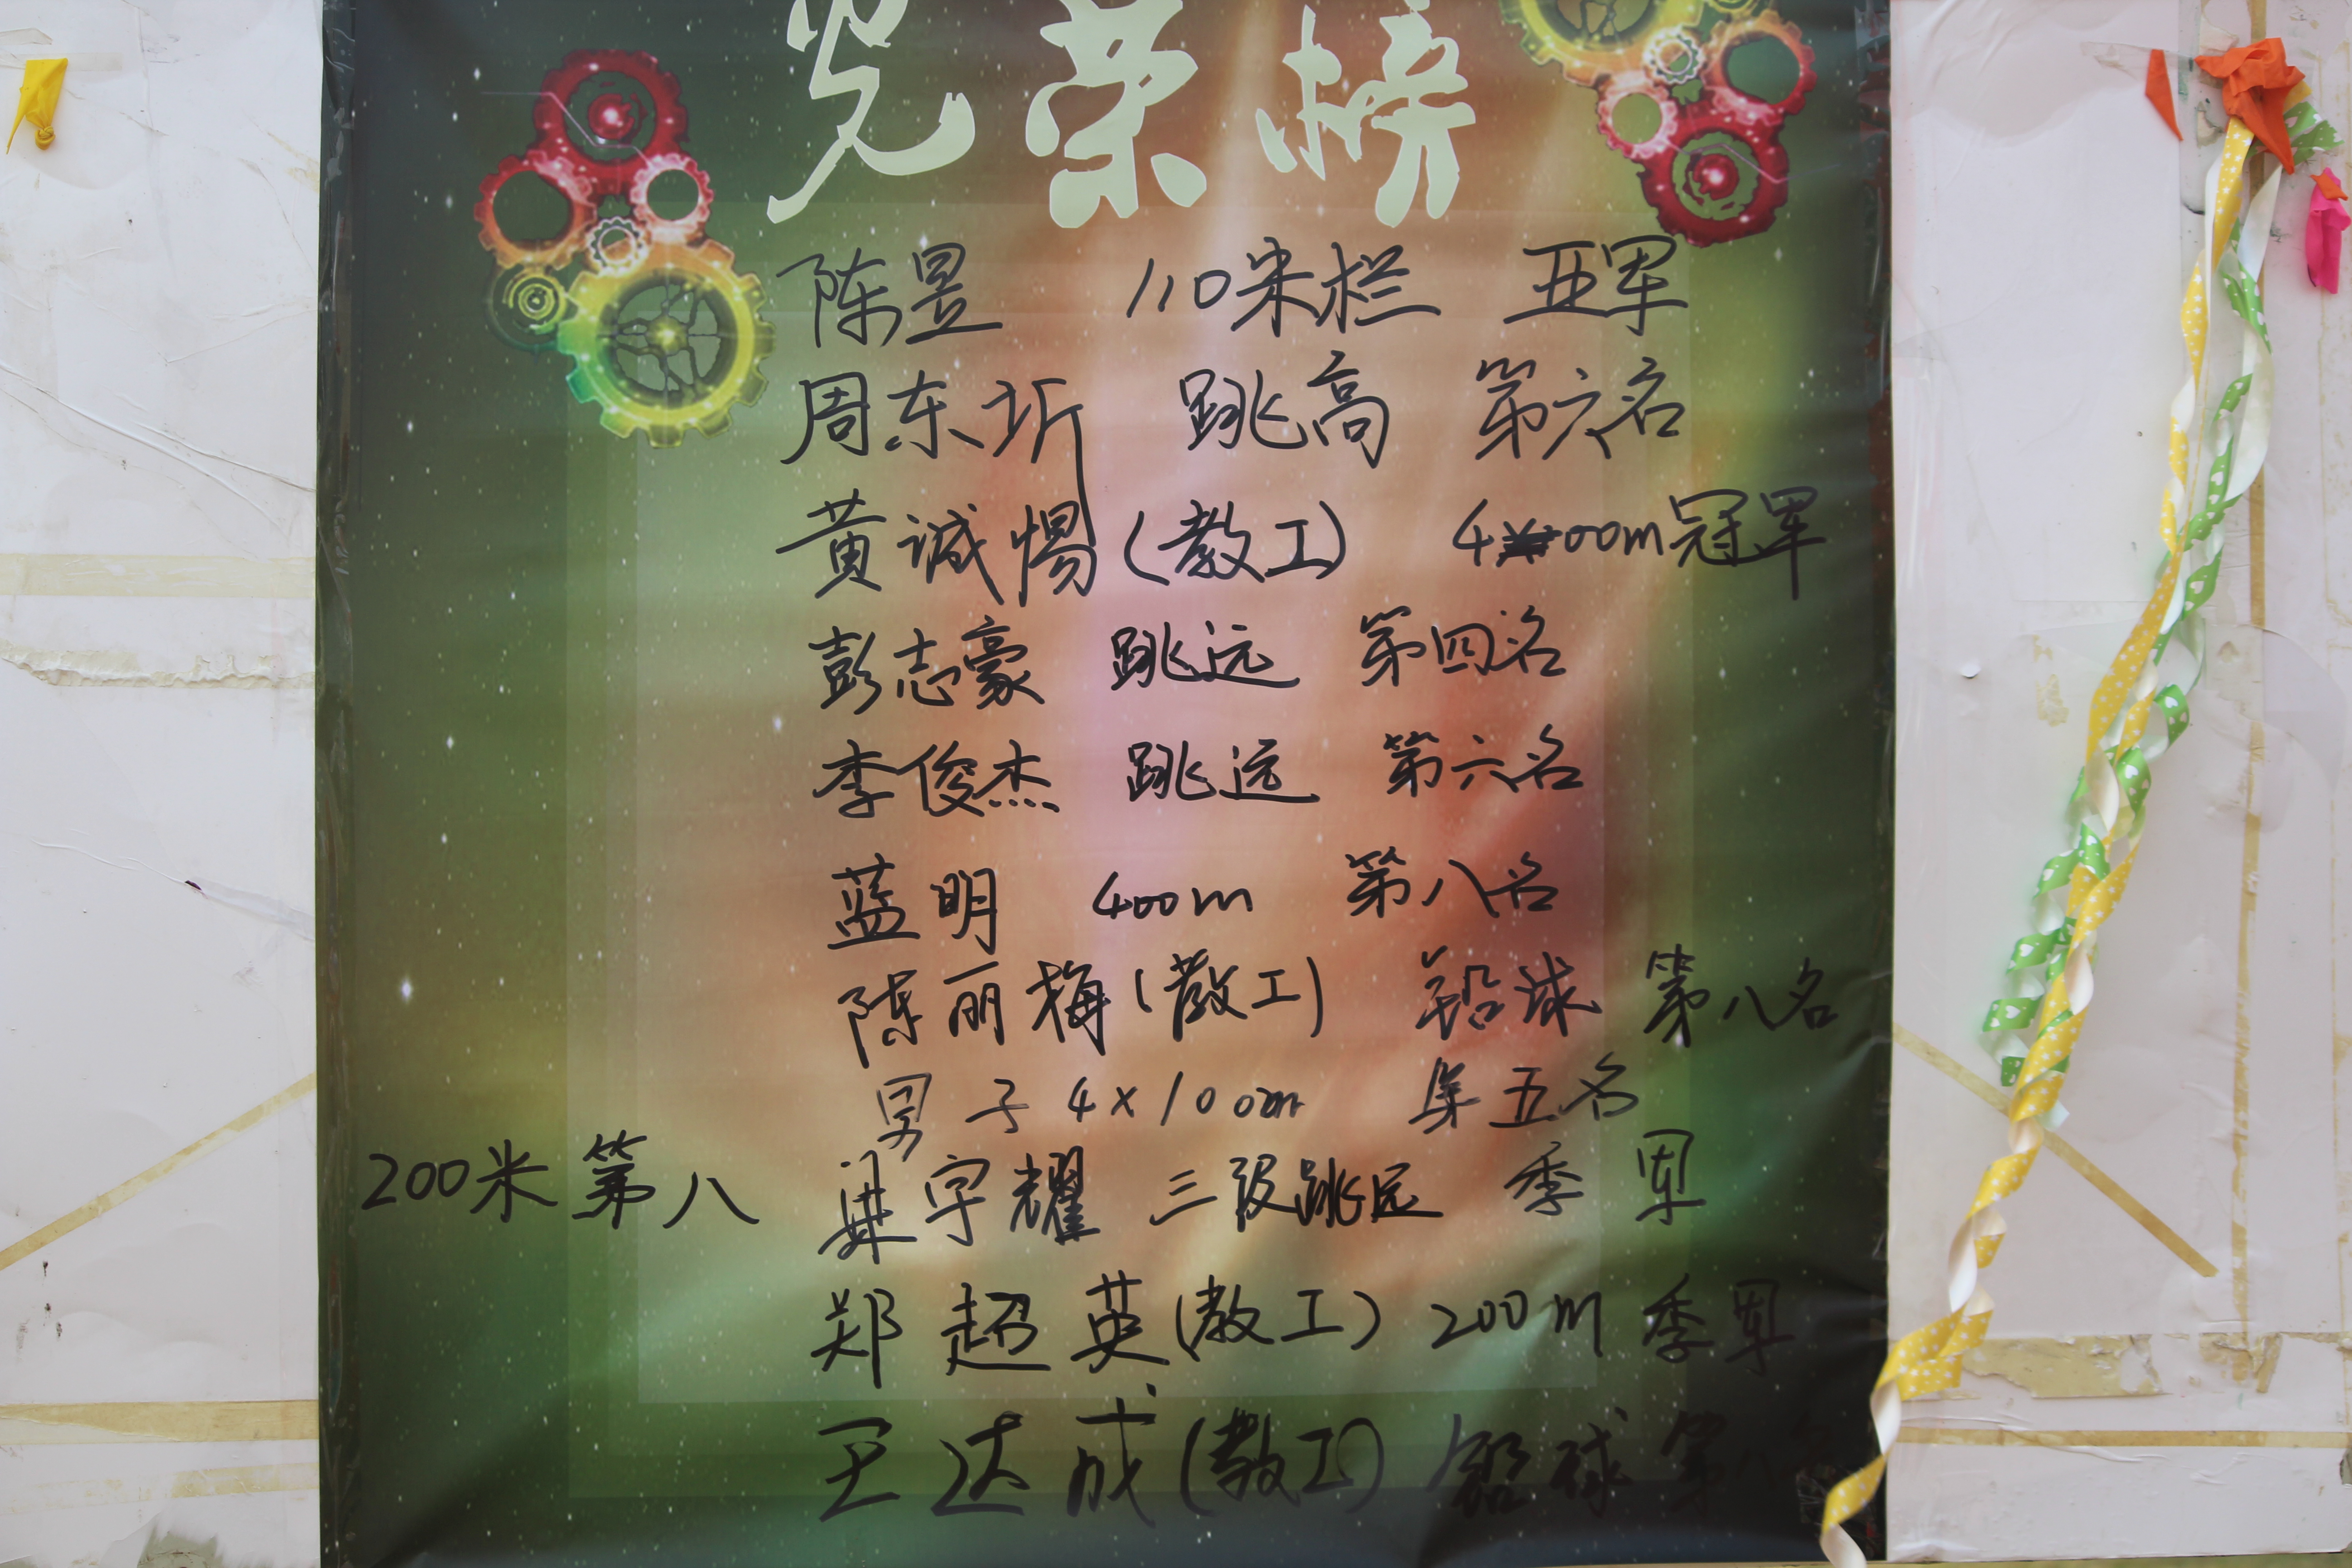 光荣榜
陈昱 110米栏 亚军
周东圻 跳高 第六名
黄诚惕(教工) 400m冠军
彭志豪 跳远 第四名
李俊杰 跳远 第六名
蓝明 400m 第八名
陈丽梅(教工) 铅球 第八名
男子4×100m 第五名
200米第八 梁宇耀 三级跳远 季军
郑超英(教工) 200m 季军
王达成(教工) 铅球 第八名